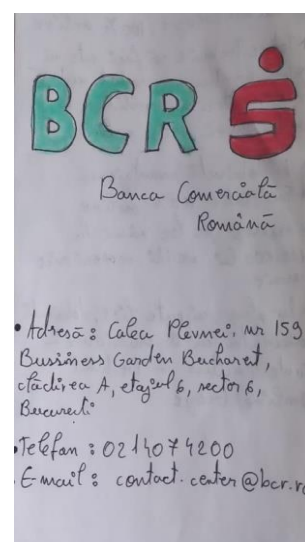 BCR S
Banca Comercială
Română
• Adresă: Calea Plevnei, nr 159
Bussiness Garden Bucharest,
clădirea A, etajul 6, sector 6,
Bucuresti
• Telefon: 0214074200
• E-mail: contact.center@bcr.ro